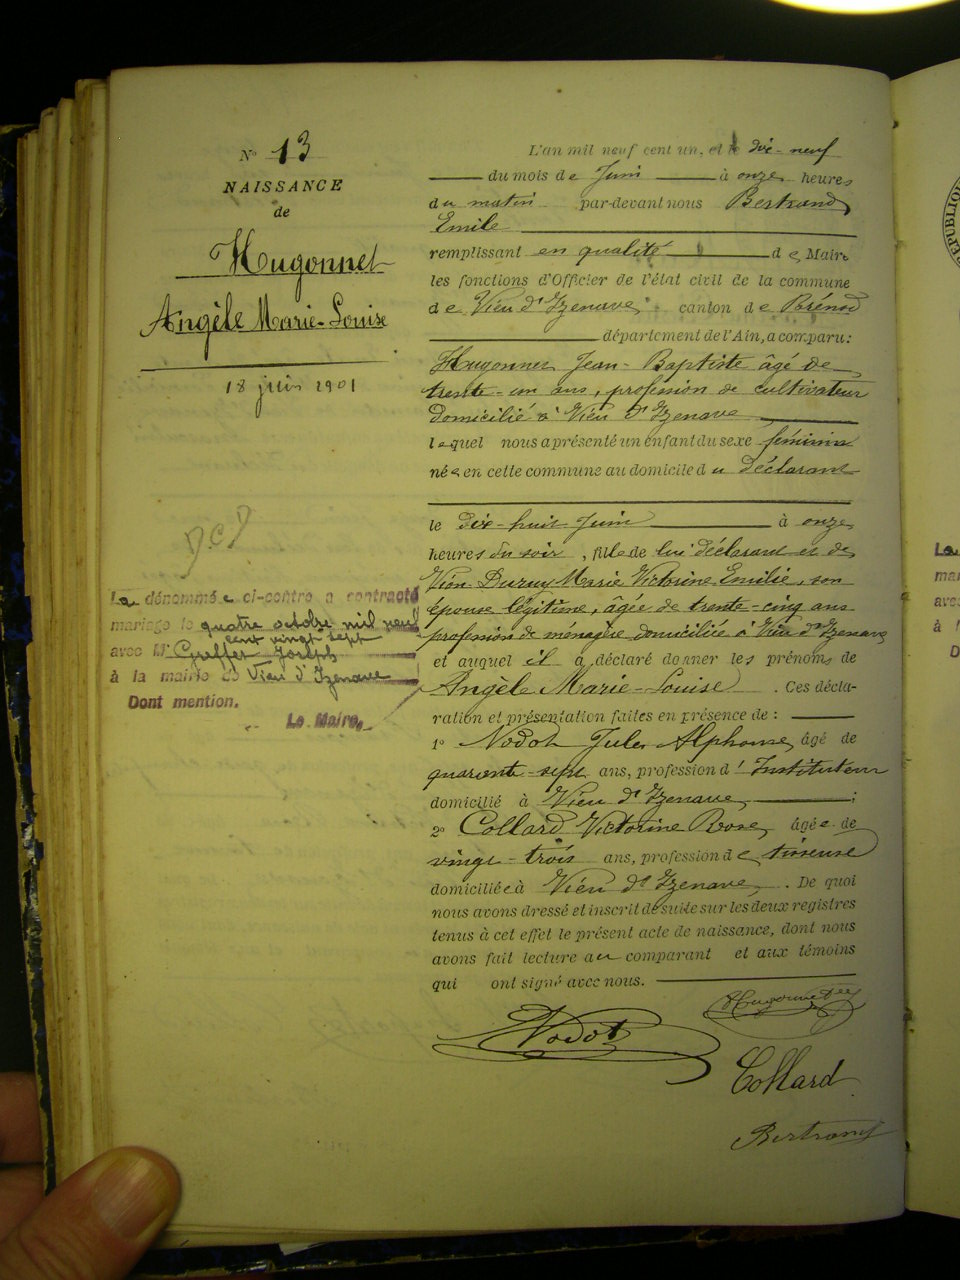 N° 13
NAISSANCE
de
Hugonnet
Angèle Marie-Louise
18 juin 1901
DCD
La dénommée ci-contre a contracté
mariage le quatre octobre mil neuf
cent vingt sept
avec Mr Greffet Joseph
à la mairie de Vieu d'Izenave
Dont mention.
Le Maire,
L'an mil neuf cent un, et le dix-neuf
du mois de Juin à onze heures
du matin par-devant nous Bertrand
Emile
remplissant en qualité de Maire
les fonctions d'Officier de l'état civil de la commune
de Vieu d'Izenave canton de Brénod
département de l'Ain, a comparu:
Hugonnet Jean-Baptiste âgé de
trente-un ans, profession de cultivateur
domicilié à Vieu d'Izenave
lequel nous a présenté un enfant du sexe féminin
née en cette commune au domicile du déclarant
le dix-huit Juin à onze
heures du soir, fille de lui déclarant et de
Vion-Dury Marie Victorine Emilie, son
épouse légitime, âgée de trente-cinq ans
profession de ménagère domiciliée à Vieu d'Izenave
et auquel il a déclaré donner les prénoms de
Angèle Marie-Louise. Ces décla-
ration et présentation faites en présence de:
1° Nodot Jules Alphonse, âgé de
quarante-sept ans, profession d'Instituteur
domicilié à Vieu d'Izenave;
2° Collard Victorine Rose, âgée de
vingt-trois ans, profession de tisseuse
domiciliée à Vieu d'Izenave. De quoi
nous avons dressé et inscrit de suite sur les deux registres
tenus à cet effet le présent acte de naissance, dont nous
avons fait lecture au comparant et aux témoins
qui ont signé avec nous.
Hugonnet
Nodot
Collard
Bertrand
La
mar
avec
à l
D